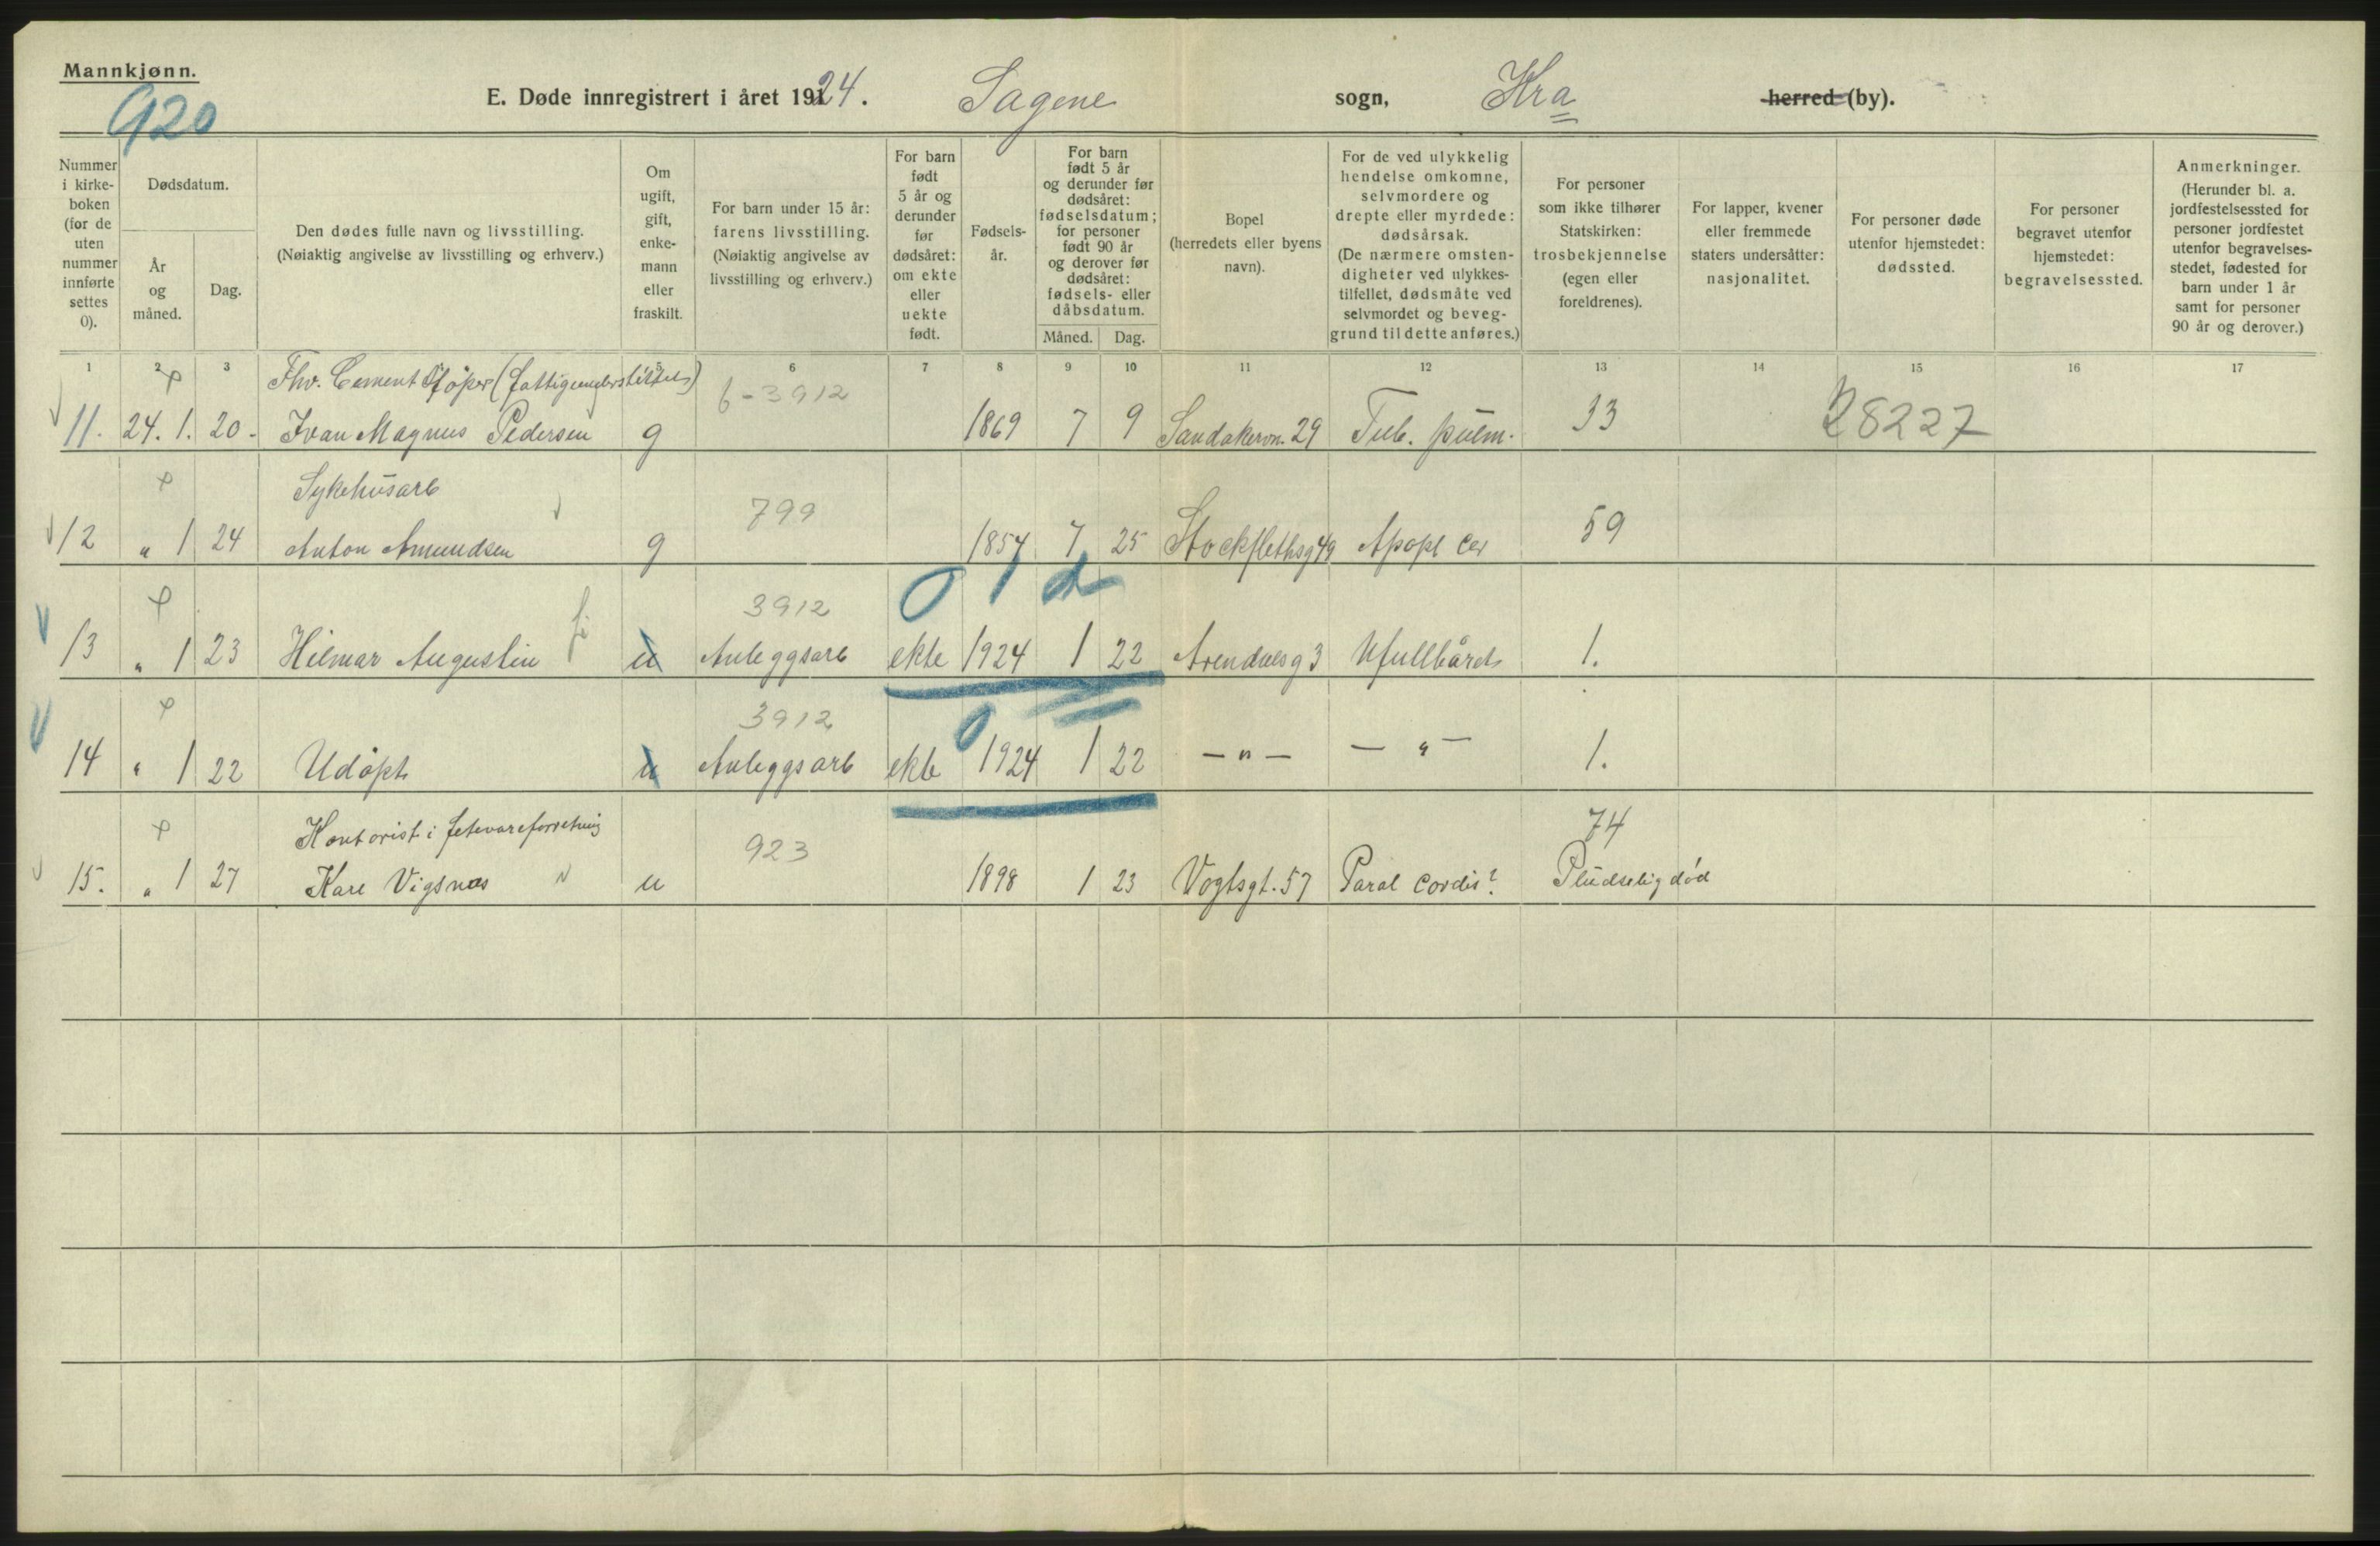 Mannkjønn.
920
E. Døde innregistrert i året 1924. Sagene sogn, Kra herred (by).
Nummer i kirke- boken (for de uten nummer innførte settes 0).
Dødsdatum.
År og måned.
Dag.
Den dødes fulle navn og livsstilling. (Nøiaktig angivelse av livsstilling og erhverv.)
Om ugift, gift, enke- mann eller fraskilt.
For barn under 15 år: farens livsstilling. (Nøiaktig angivelse av livsstilling og erhverv.)
For barn født 5 år og derunder før dødsåret: om ekte eller uekte født.
Fødsels- år.
For barn født 5 år og derunder før dødsåret: fødselsdatum; for personer født 90 år og derover før dødsåret: fødsels- eller dåbsdatum.
Måned. Dag.
Bopel (herredets eller byens navn).
For de ved ulykkelig hendelse omkomne, selvmordere og drepte eller myrdede: dødsårsak. (De nærmere omsten- digheter ved ulykkes- tilfellet, dødsmåte ved selvmordet og beveg- grund til dette anføres.)
For personer som ikke tilhører Statskirken: trosbekjennelse (egen eller foreldrenes).
For lapper, kvener eller fremmede staters undersåtter: nasjonalitet.
For personer døde utenfor hjemstedet: dødssted.
For personer begravet utenfor hjemstedet: begravelsessted.
Anmerkninger. (Herunder bl. a. jordfestelsessted for personer jordfestet utenfor begravelses- stedet, fødested for barn under 1 år samt for personer 90 år og derover.)
1 2 3 6 7 8 9 10 11 12 13 14 15 16 17
Fhv. Cement støper (fattigunderstøttet) 6-3912
11. 24. 1. 20. Ivan Magnus Pedersen g 1869 7 9 Sandakervn. 29 Tub. pulm. 33 28227
Sykehusarb 799
12 " 1 24 Anton Amundsen g 1854 7 25 Stockflethsg 49 Apopl cer 59
3912
13 " 1 23 Hilmar Augustin u Anleggsarb ekte 1924 1 22 Arendalsg 3 Ufullbåret 1.
3912
14 " 1 22 Udøpt u Anleggsarb ekte 1924 1 22 — " — — " — 1.
Kontorist i fetevareforretning 923 74
15. " 1 27 Kare Vigsnæs u 1898 1 23 Vogtsgt. 57 Paral cordis? Pludselig død